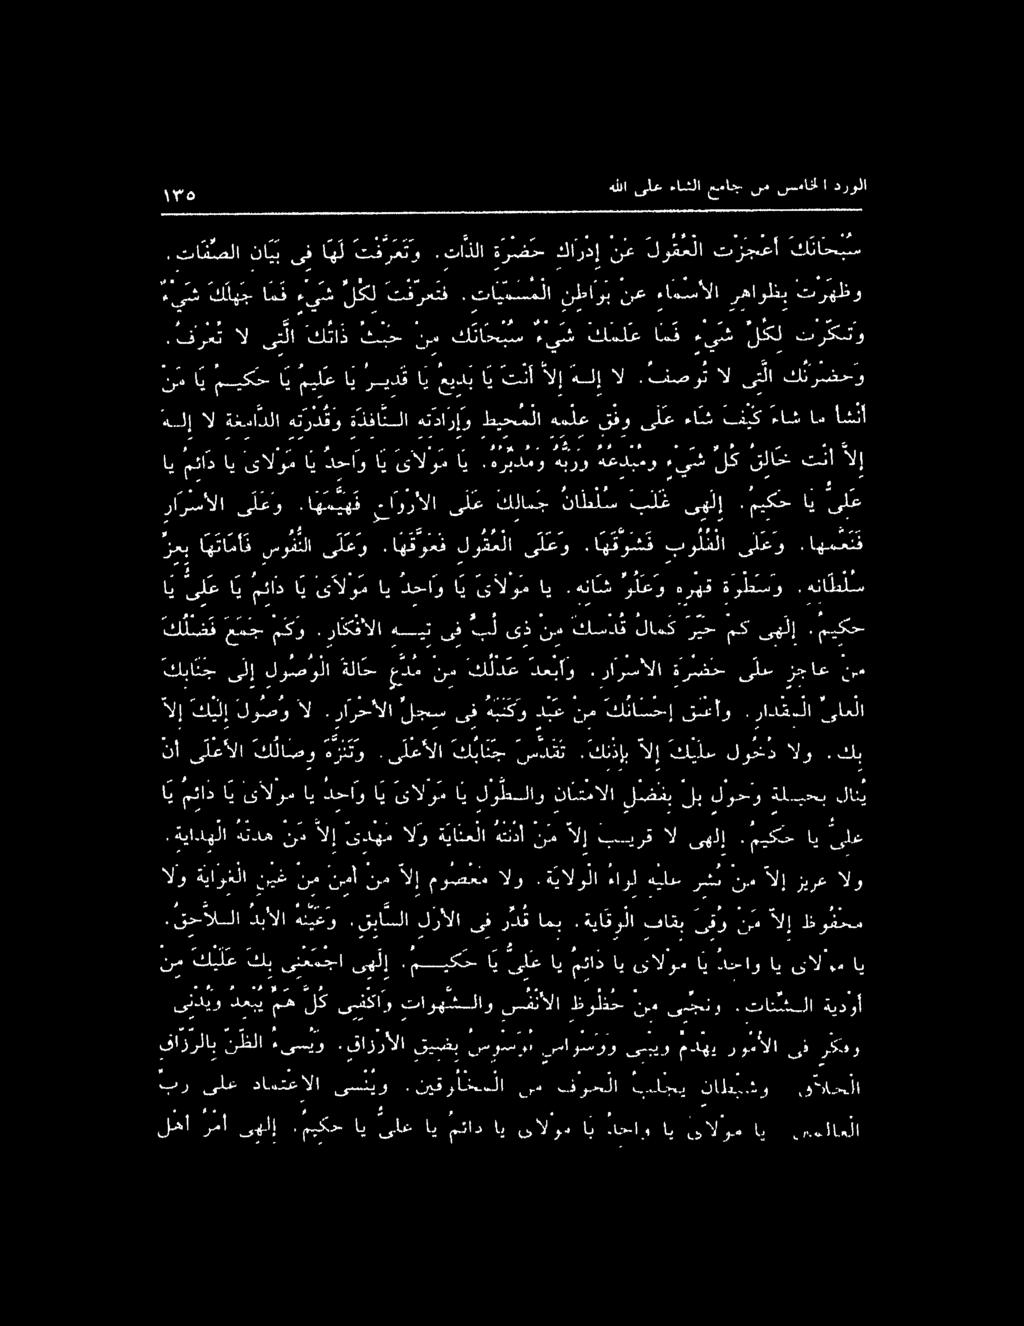 الورد الخامس من جامع الثناء على الله ١٣٥
سُبْحَانَكَ أَعْجَزْتَ الْعُقُولَ عَنْ إِدْرَاكِ حَضْرَةِ الذَّاتِ. وَتَعَرَّفْتَ لَهَا فِى بَيَانِ الصِّفَاتِ.
وَظَهَرْتَ بِظَوَاهِرِ الأَسْمَاءِ عَنْ بَوَاطِنِ الْمُسَمَّيَاتِ. فَتَعَرَّفْتَ لِكُلِّ شَىْءٍ فَمَا جَهِلَكَ شَىْءٌ
وَتَنَكَّرْتَ لِكُلِّ شَىْءٍ فَمَا عَلِمَكَ شَىْءٌ سُبْحَانَكَ مِنْ حَيْثُ ذَاتُكَ الَّتِى لاَ تُعْرَفُ.
وَحَضْرَتُكَ الَّتِى لاَ تُوصَفُ. لاَ إِلـهَ إِلاَّ أَنْتَ يَا بَدِيعُ يَا قَدِيرُ يَا عَلِيمُ يَا حَكِيمُ يَا مَنْ
أَنْشَأَ مَا شَاءَ كَيْفَ شَاءَ عَلَى وِفْقِ عِلْمِهِ الْمُحِيطِ وَإِرَادَتِهِ الـنَّافِذَةِ وَقُدْرَتِهِ الدَّامِغَةِ لاَ إِلـهَ
إِلاَّ أَنْتَ خَالِقُ كُلِّ شَىْءٍ وَمُبْدِعُهُ وَرَبُّهُ وَمُدَبِّرُهُ. يَا مَوْلاَىَ يَا وَاحِدُ يَا مَوْلاَىَ يَا دَائِمُ يَا
عَلِىُّ يَا حَكِيمُ. إِلَهِى غَلَبَ سُلْطَانُ جَمَالِكَ عَلَى الأَرْوَاحِ فَهَيَّمَهَا. وَعَلَى الأَسْرَارِ
فَنَعَّمَهَا. وَعَلَى الْقُلُوبِ فَشَوَّقَهَا. وَعَلَى الْعُقُولِ فَعَوَّقَهَا. وَعَلَى النُّفُوسِ فَأَمَاتَهَا بِعِزِّ
سُلْطَانِهِ. وَسَطْوَةِ قَهْرِهِ وَعُلُوِّ شَانِهِ. يَا مَوْلاَىَ يَا وَاحِدُ يَا مَوْلاَىَ يَا دَائِمُ يَا عَلِىُّ يَا
حَكِيمُ. إِلَهِى كَمْ حَيَّرَ كَمَالُ قُدْسِكَ مِنْ ذِى لُبٍّ فِى تِيـهِ الأَفْكَارِ. وَكَمْ جَمَعَ فَضْلُكَ
مِنْ عَاجِزٍ عَلَى حَضْرَةِ الأَسْرَارِ. وَأَبْعَدَ عَدْلُكَ مِنْ مُدَّعٍ حَالَةَ الْوُصُولِ إِلَى جَنَابِكَ
الْعَلِىِّ الْمِقْدَارِ. وَأَعْتَقَ إِحْسَانُكَ مِنْ عَبْدٍ وَكَتَبَهُ فِى سِجِلِّ الأَحْرَارِ. لاَ وُصُولَ إِلَيْكَ إِلاَّ
بِكَ. وَلاَ دُخُولَ عَلَيْكَ إِلاَّ بِإِذْنِكَ. تَقَدَّسَ جَنَابُكَ الأَعْلَى. وَتَنَزَّهَ وِصَالُكَ الأَعْلَى أَنْ
يُنَالَ بِحِيـلَةٍ وَحَوْلٍ بَلْ بِفَضْلِ الاِمْتِنَانِ وَالـطَّوْلِ يَا مَوْلاَىَ يَا وَاحِدُ يَا مَوْلاَىَ يَا دَائِمُ يَا
عَلِىُّ يَا حَكِيمُ. إِلَهِى لاَ قَرِيـبَ إِلاَّ مَنْ أَدْنَتْهُ الْعِنَايَةُ وَلاَ مَهْدِىَّ إِلاَّ مَنْ هَدَتْهُ الْهِدَايَةُ.
وَلاَ عَزِيزَ إِلاَّ مَنْ نُشِرَ عَلَيْهِ لِوَاءُ الْوِلاَيَةِ. وَلاَ مَعْصُومَ إِلاَّ مَنْ أَمِنَ مِنْ غَيْنِ الْغَوَايَةِ وَلاَ
مَحْفُوظَ إِلاَّ مَنْ وُقِىَ بِقَافِ الْوِقَايَةِ. بِمَا قُدِّرَ فِى الأَزَلِ السَّابِقِ. وَعَيَّنَهُ الأَبَدُ الـلاَّحِقُ.
يَا مَوْلاَىَ يَا وَاحِدُ يَا مَوْلاَىَ يَا دَائِمُ يَا عَلِىُّ يَا حَكِيـمُ. إِلَهِى اجْمَعْنِى بِكَ عَلَيْكَ مِنْ
أَوْدِيَةِ الـشَّتَاتِ. وَنَجِّنِى مِنْ حُظُوظِ الأَنْفُسِ وَالـشَّهَوَاتِ وَاكْفِنِى كُلَّ هَمٍّ يُبْعِدُ وَيُدْنِى
وَفِكْرٍ فِى الأُمُورِ يَهْدِمُ وَيَبْنِى وَوَسْوَاسٍ يُوَسْوِسُ بِضِيقِ الأَرْزَاقِ. وَيُسِىءُ الظَّنَّ بِالرَّزَّاقِ
الْخَلاَّقِ وَشَيْطَانٍ يَجْلِبُ الْخَوْفَ مِنَ الْمَخْلُوقِينَ. وَيُنْسِى الاِعْتِمَادَ عَلَى رَبِّ
الْعَالَمِينَ يَا مَوْلاَىَ يَا وَاحِدُ يَا مَوْلاَىَ يَا دَائِمُ يَا عَلِىُّ يَا حَكِيمُ. إِلَهِى أَمْرُ أَهْلِ